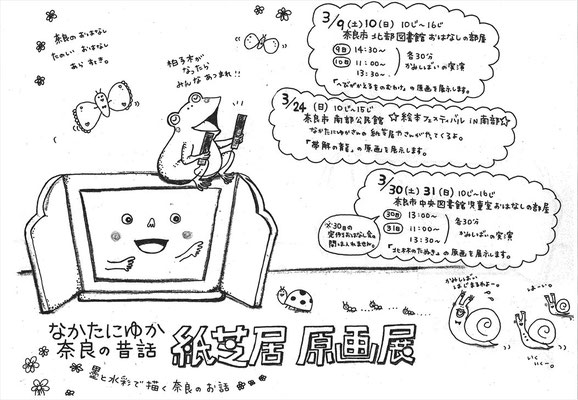 奈良のおはなし
たのしいおはなし
あらすぎ。
拍子木が
なったら
みんなあつまれ!!
3/9(土)10(日) 10じ〜16じ
奈良市 北部図書館 おはなしの部屋
9日 14:30〜
10日 11:00〜
13:30〜
各30分
かみしばいの実演
「へびがかえるをのむわけ」の原画を展示します。
3/24(日)10じ〜15じ
奈良市 南部公民館 ☆絵本フェスティバル IN 南部☆
なかたにゆかさんの紙芝居がさんがやてくるよ。
「帯解の龍」の原画を展示します。
3/30(土)31(日)10じ〜16じ
奈良市 中央図書館 児童室 おはなしの部屋
30日 13:00〜
31日 11:00〜
13:30〜
各30分
かみしばいの実演
「北林のたぬき」の原画を展示します。
※30日の
定例おはなし会の
間は入れません。
かみしばい
はじまるわよ〜。
はーい。
いく
いくー。
なかたにゆか
奈良の昔話
紙芝居 原画展
墨と水彩で描く奈良のお話